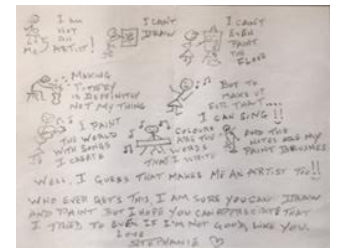 I AM
NOT
AN
ARTIST!
ME
I CAN'T
DRAW
I CAN'T
EVEN
PAINT
THE
FLOOR
MAKING
POTTERY
IS DEFINITELY
NOT MY THING
BUT TO
MAKE UP
FOR THAT....
I CAN SING!!
I PAINT
THE WORLD
WITH SONGS
I CREATE
COLOURS
ARE THE
WORDS
THAT I WRITE
AND THE
NOTES ARE MY
PAINT BRUSHES
WELL, I GUESS THAT MAKES ME AN ARTIST TOO!!
WHO EVER GETS THIS, I AM SURE YOU CAN DRAW
AND PAINT BUT I HOPE YOU CAN APPRECIATE THAT
I TRIED TO EVEN IF I'M NOT GOOD, LIKE YOU.
LOVE
STEPHANIE